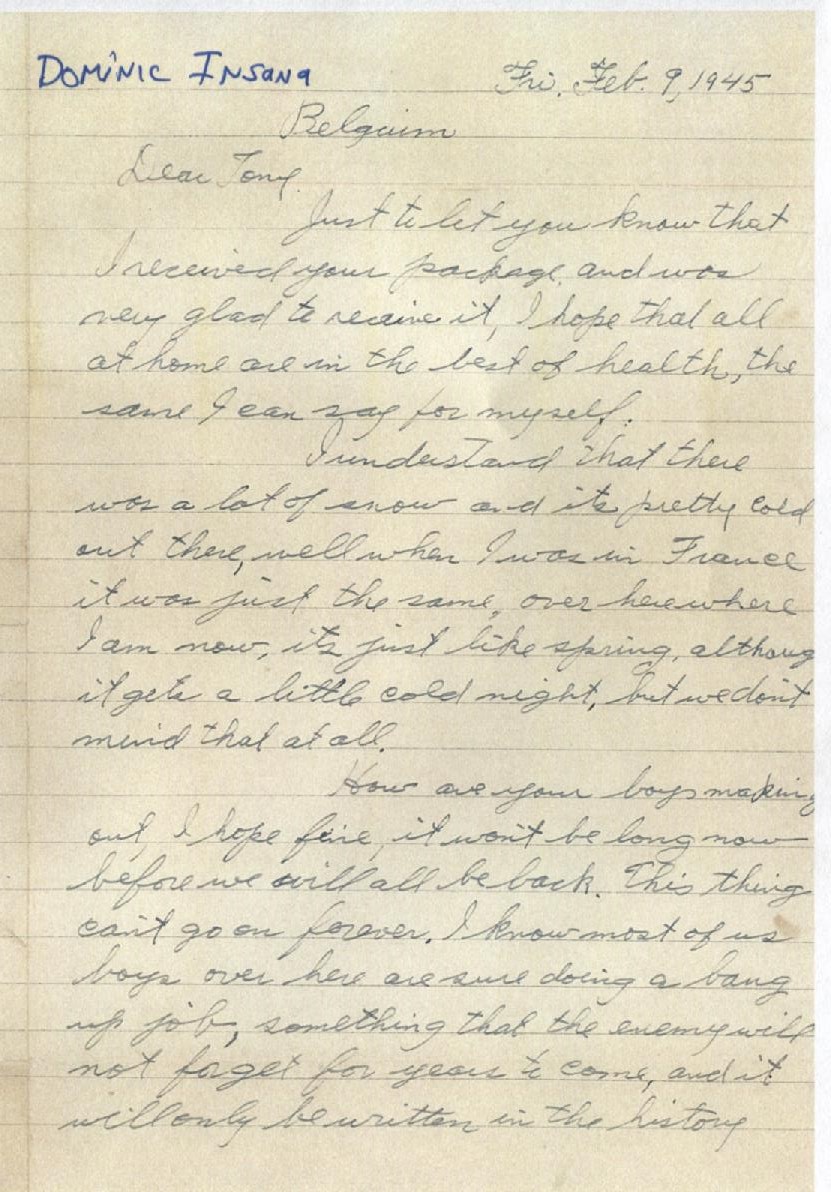 DOMINIC INSANA
Fri. Feb. 9, 1945
Belguim
Dear Tony.
Just to let you know that
I received your package, and was
very glad to receive it, I hope that all
at home are in the best of health, the
same I can say for myself.
I understand that there
was a lot of snow and its pretty cold
out there, well when I was in France
it was just the same, over here where
I am now, its just like spring, althoug
it gets a little cold night, but we don't
mind that at all.
How are your boys making
out, I hope fine, it won't be long now
before we will all be back. This thing
can't go on forever. I know most of us
boys over here are sure doing a bang
up job, something that the enemy will
not forget for years to come, and it
will only be written in the history